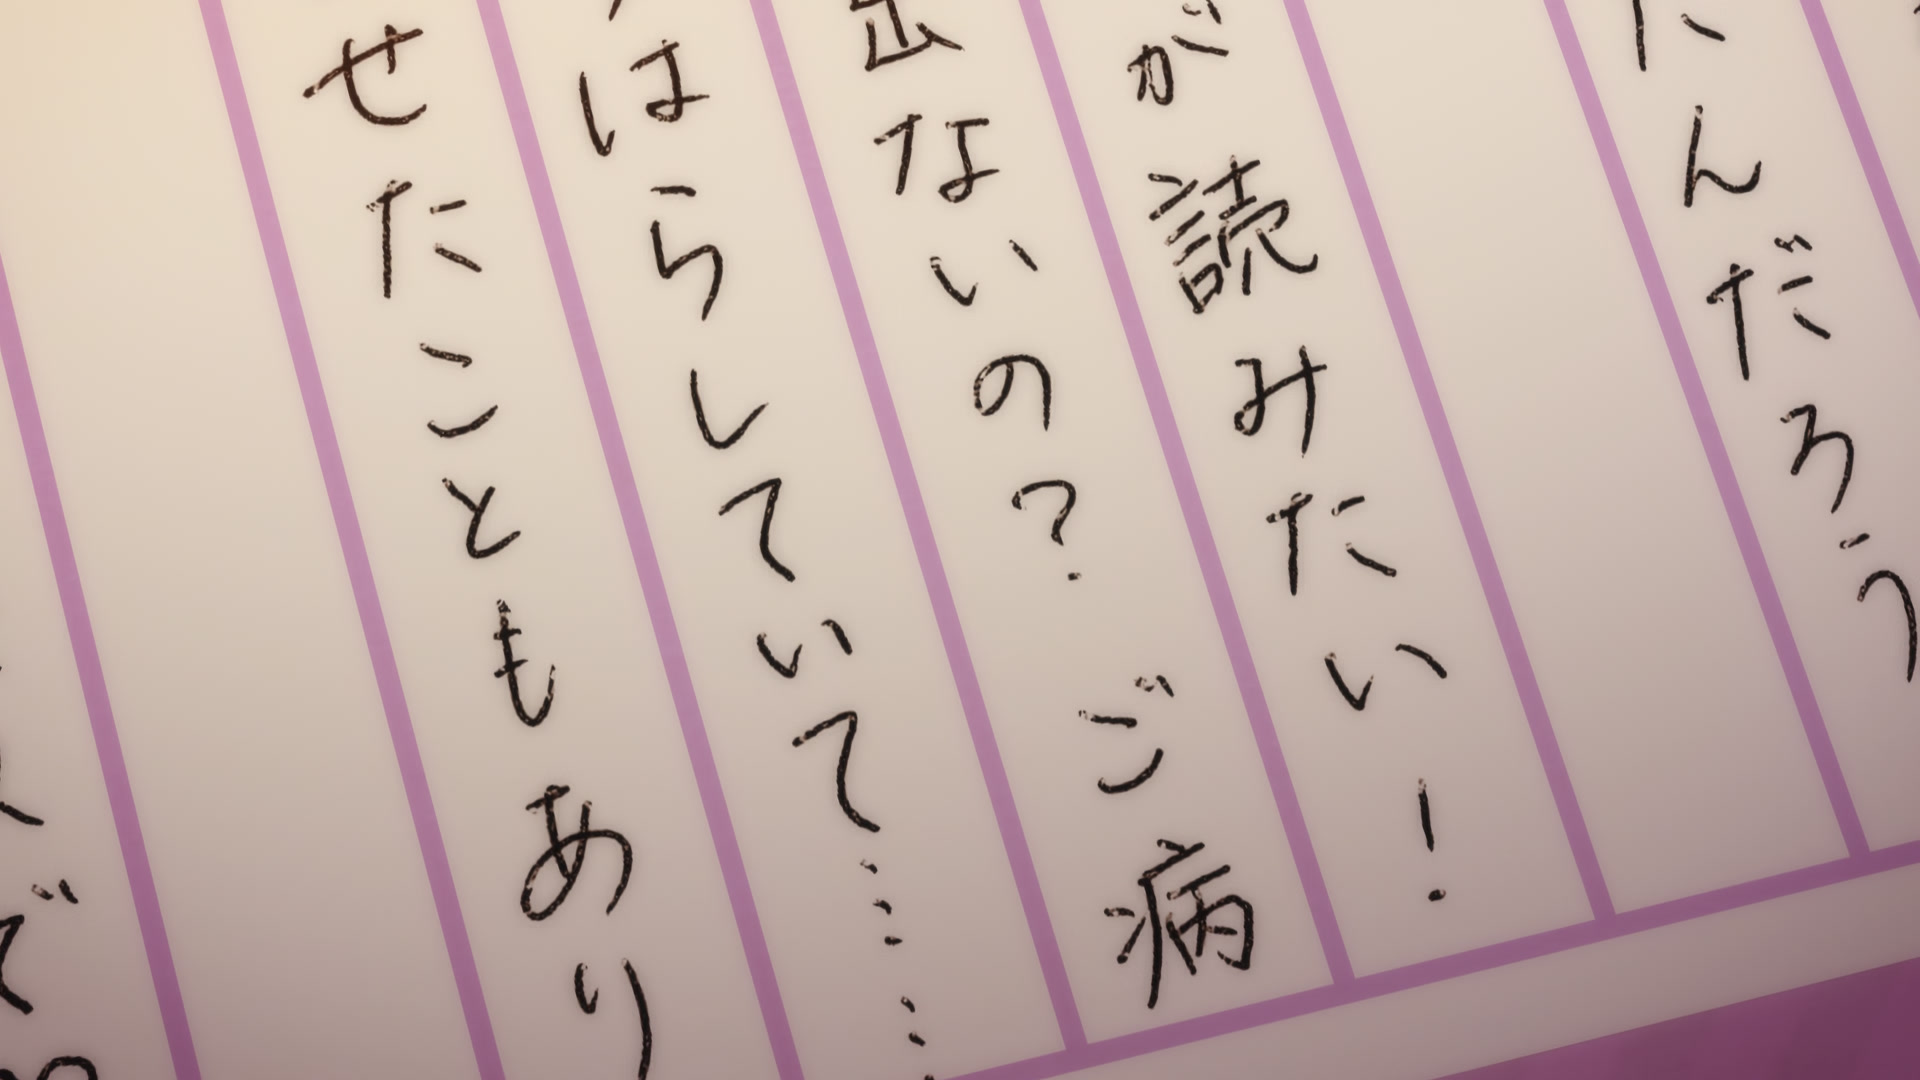 んだろう
が読みたい！
出ないの？　ご病
はらしていて……
せたこともあり